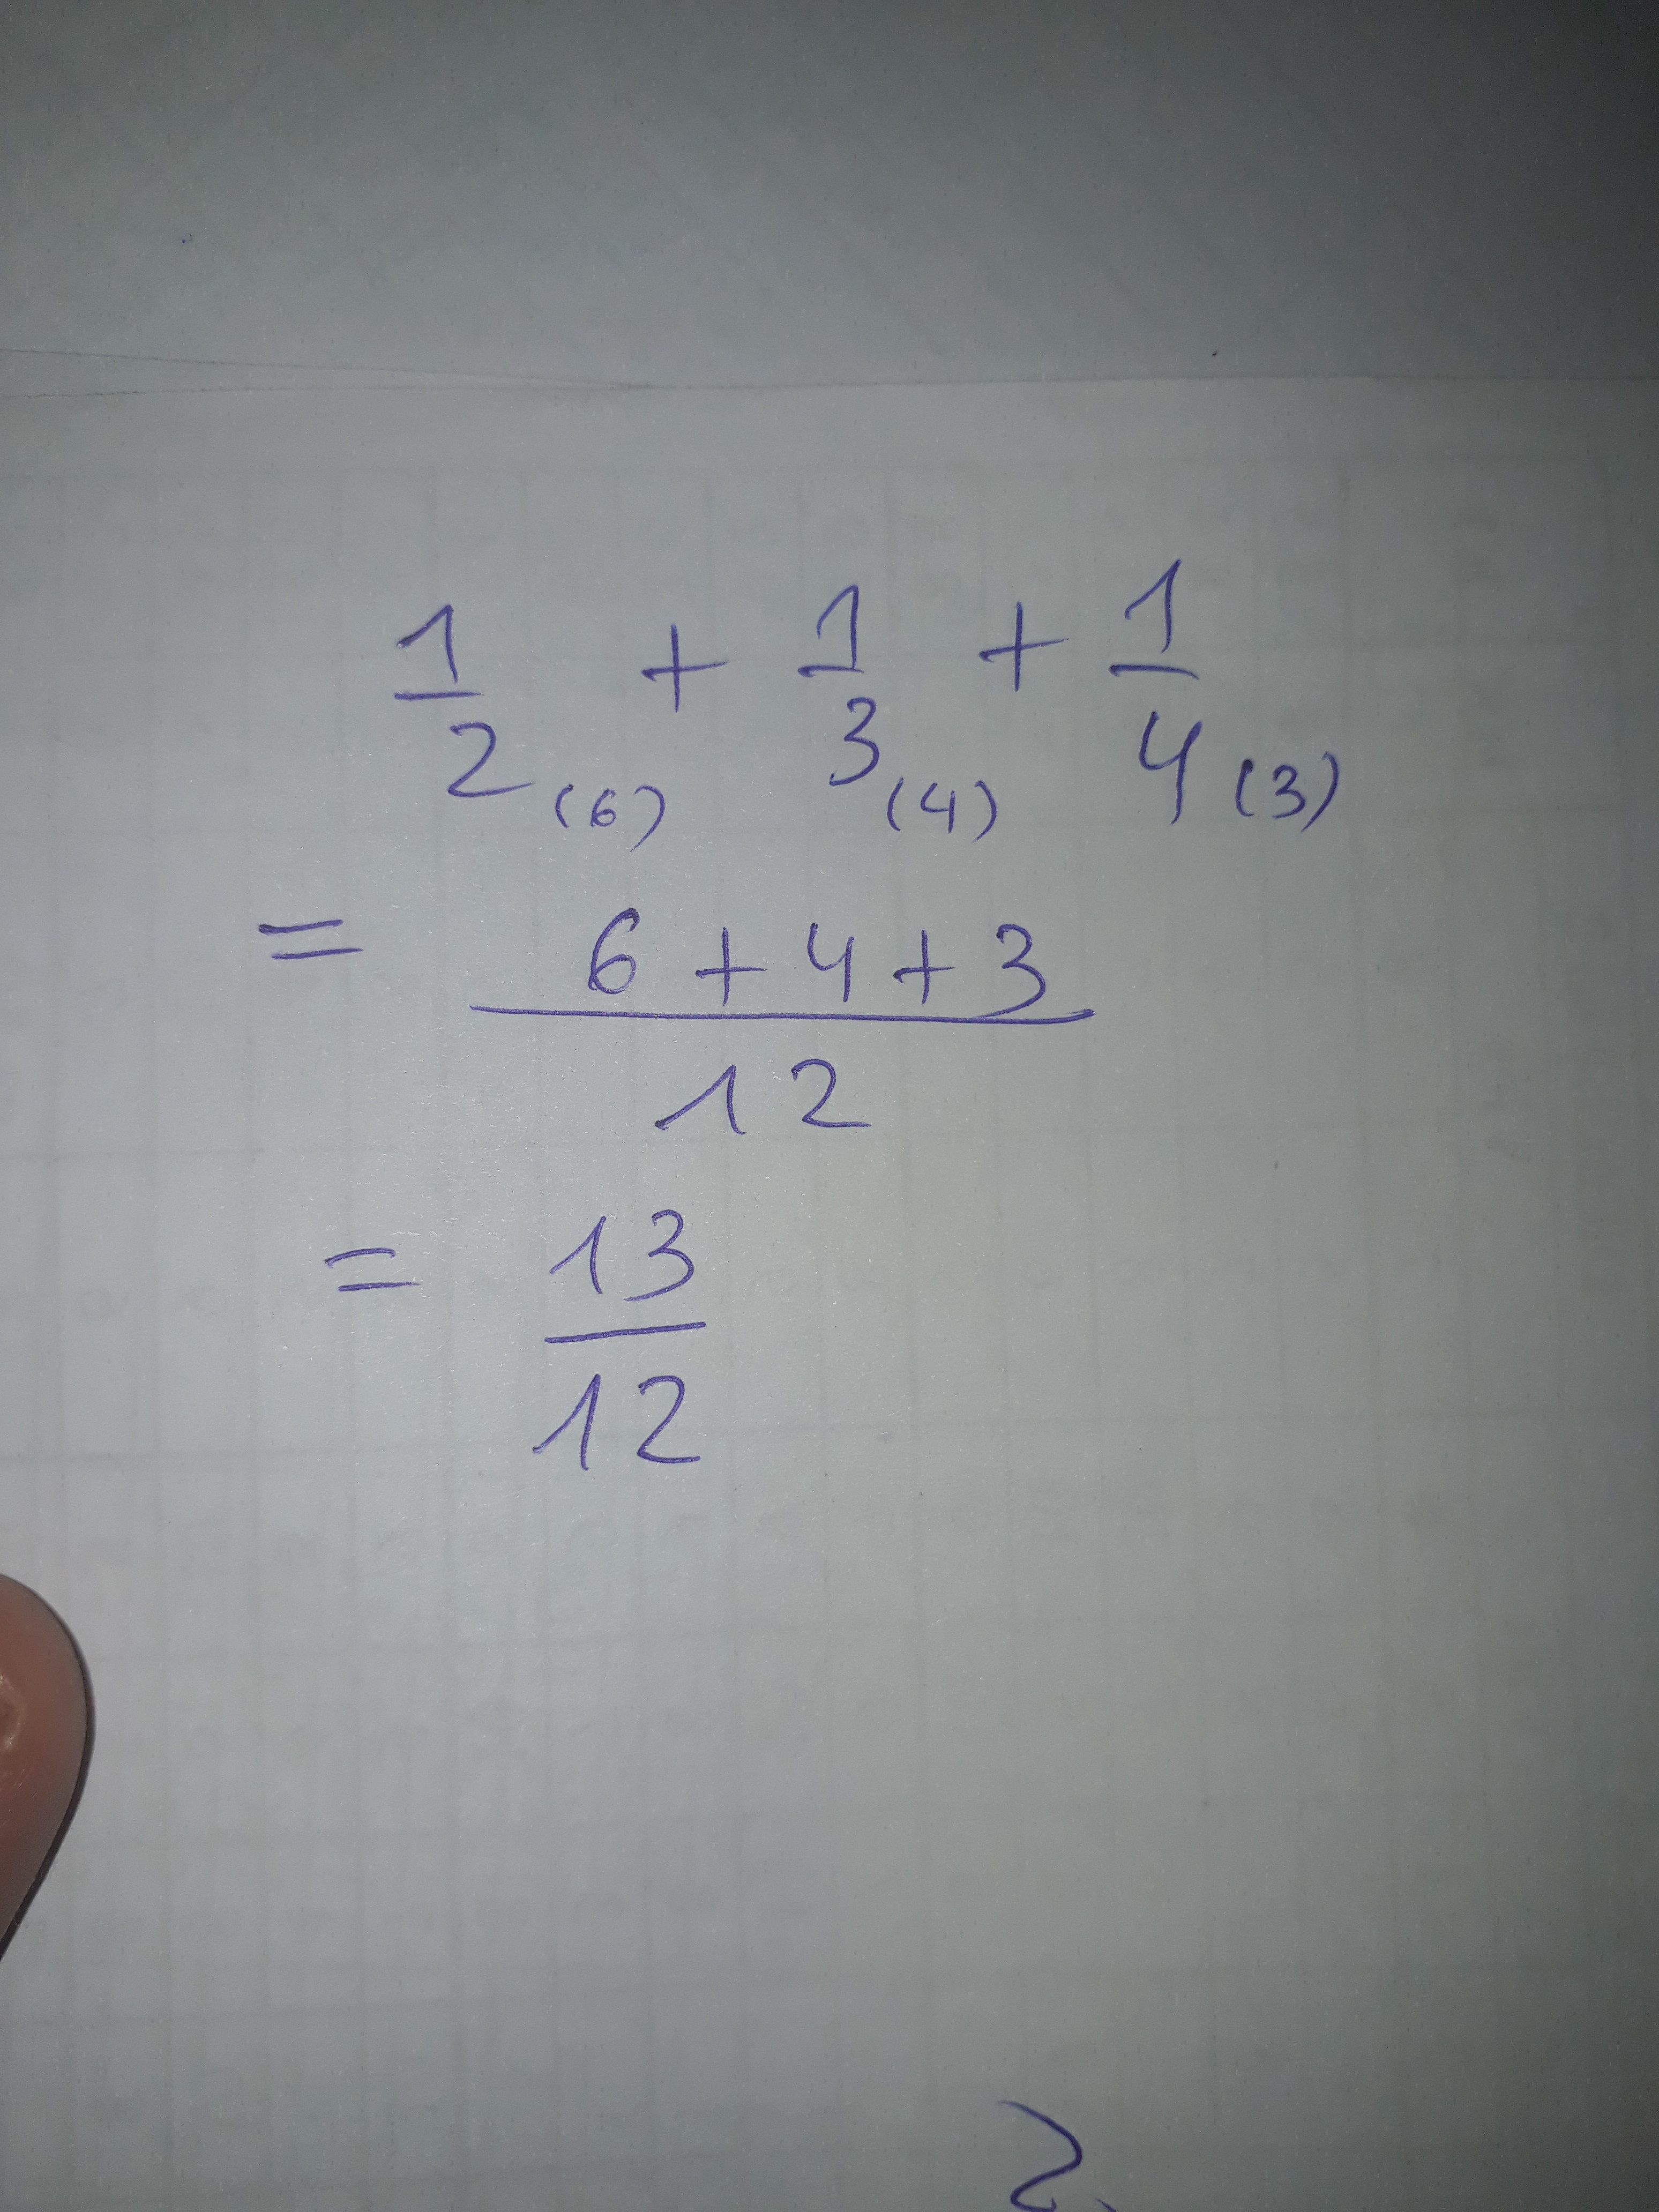 1/2 (6) + 1/3 (4) + 1/4 (3)
= (6 + 4 + 3)/12
= 13/12
2